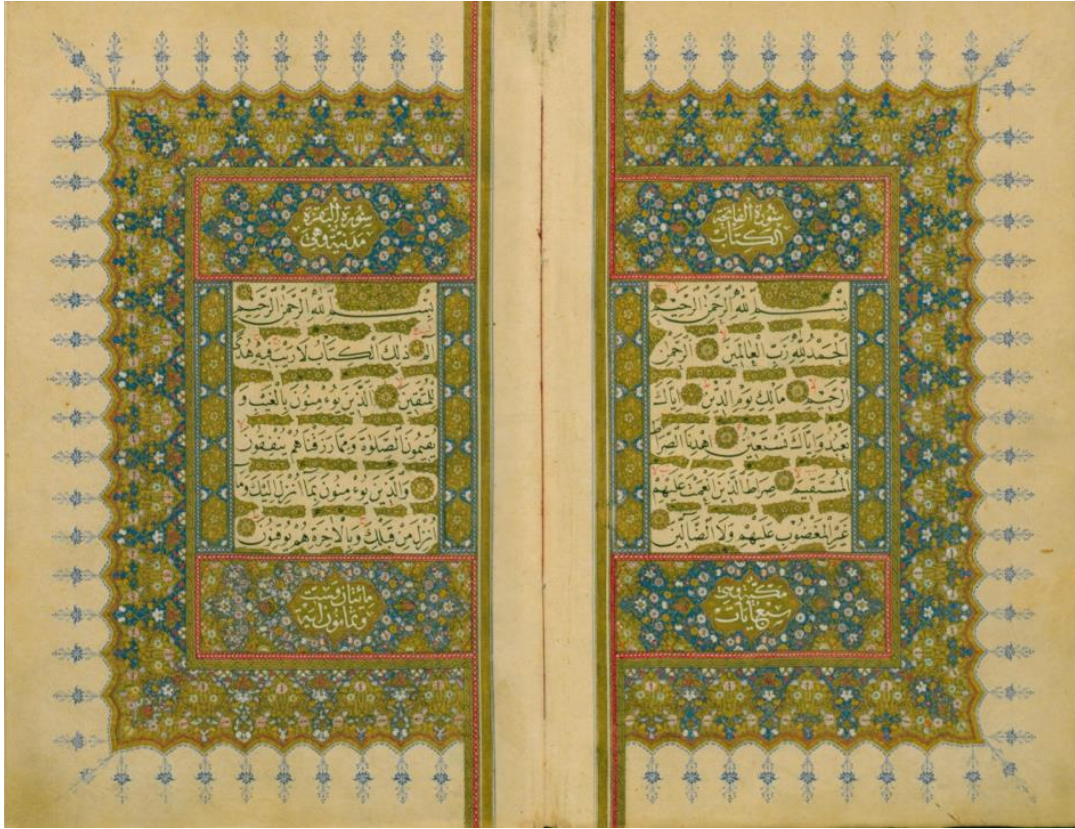 سورة الفاتحة
الكتاب
بسم الله الرحمن الرحيم
الحمد لله رب العالمين الرحمن
الرحيم مالك يوم الدين اياك
نعبد واياك نستعين اهدنا الصراط
المستقيم صراط الذين انعمت عليهم
غير المغضوب عليهم ولا الضالين
مكية وهي
سبع ايات
سورة البقرة
مدنية وهي
بسم الله الرحمن الرحيم
الم ذلك الكتاب لا ريب فيه هدى
للمتقين الذين يؤمنون بالغيب و
يقيمون الصلوة ومما رزقناهم ينفقون
والذين يؤمنون بما انزل اليك وما
انزل من قبلك وبالاخرة هم يوقنون
مائتان وست
وثمانون اية